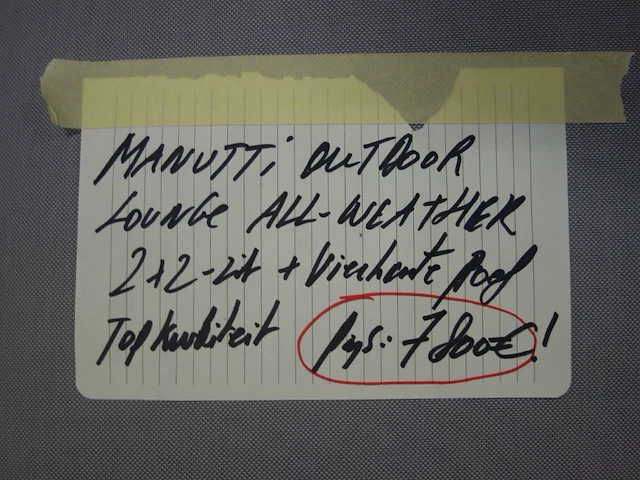 MANUTTI OUTDOOR
LOUNGE ALL-WEATHER
2x2-zit + Vierkante poef
Topkwaliteit prijs: 7800€!